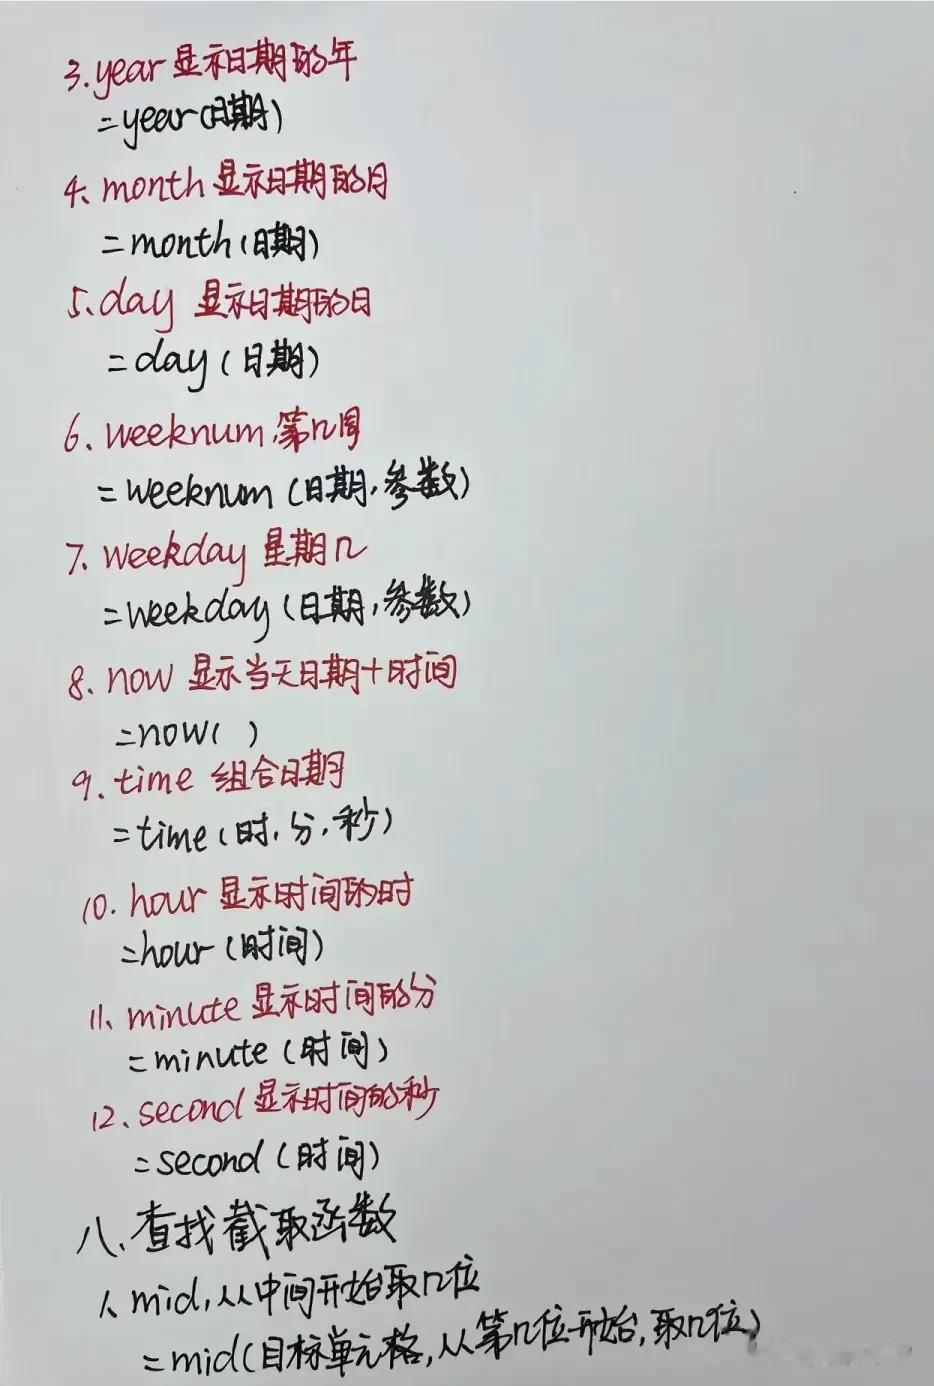 3.year 显示日期的年
=year(日期)
4、month 显示日期的月
=month(日期)
5.day 显示日期的日
=day(日期)
6、weeknum,第几周
=weeknum(日期,参数)
7、weekday 星期几
=weekday(日期,参数)
8、now 显示当天日期+时间
=now( )
9、time 组合日期
=time(时,分,秒)
10.hour 显示时间的时
=hour(时间)
11、minute 显示时间的分
=minute(时间)
12、second 显示时间的秒
=second(时间)
八、查找截取函数
1、mid,从中间开始取几位
=mid(目标单元格,从第几位开始,取几位)